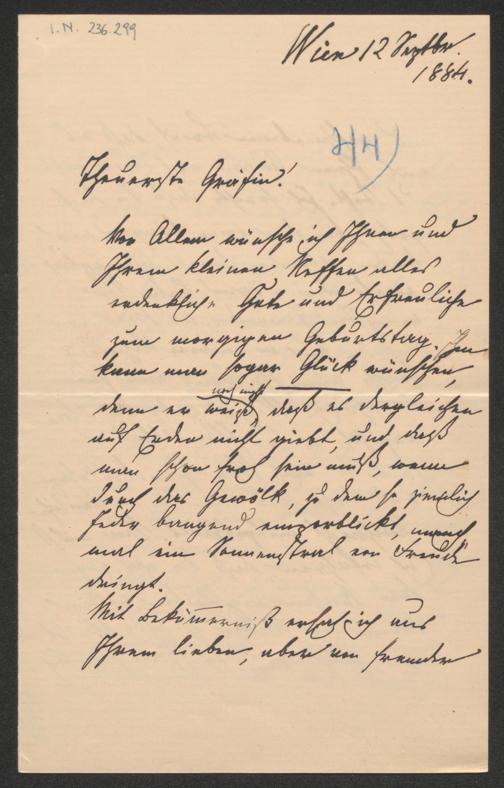 I. N. 236.299
Wien 12 Septbr.
1884.
44)
Theuerste Gräfin!
Vor Allem wünsche ich Ihnen und
Ihrem kleinen Neffen alles
erdenklich Gute und Erfreuliche
zum morgigen Geburtstag. Ihm
kann man sogar Glück wünschen,
noch nicht
denn er weiß, daß es dergleichen
auf Erden nicht giebt, und daß
man schon froh sein muß, wenn
durch das Gewölk, zu dem so ziemlich
Jeder bangend emporblickt, manch
mal ein Sonnenstral von Freude
dringt.
Mit Bekümmerniß ersah ich aus
Ihrem lieben, aber von fremder